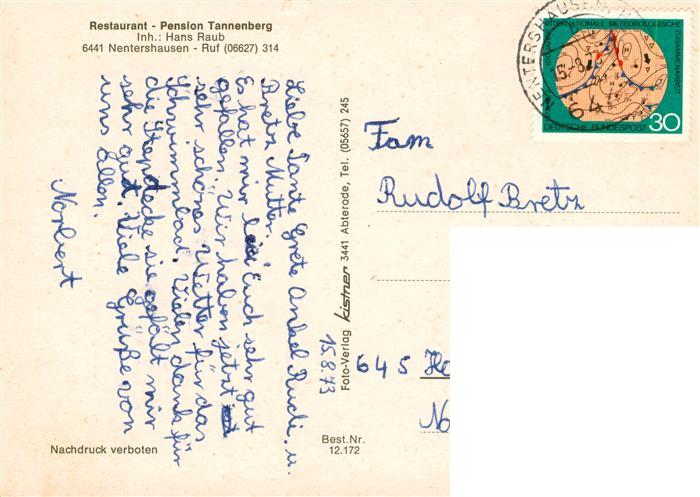 Restaurant - Pension Tannenberg
Inh.: Hans Raub
6441 Nentershausen - Ruf (06627) 314
Liebe Tante Grete Onkel Rudi. u.
Bretz Mutter.
Es hat mir bei Euch sehr gut
gefallen. Wir haben jetzt
sehr schönes Wetter für das
Schwimmbad. Vielen dank für
die Stepdecke sie gefällt mir
sehr gut. Viele Grüße von
uns Allen.
Norbert
15.8.73
Nachdruck verboten
Foto-Verlag kistner 3441 Abterode, Tel. (05657) 245
Best.Nr.
12.172
NENTERSHAUSEN
15.-8.7
64
100 JAHRE INTERNATIONALE METEOROLOGISCHE ZUSAMMENARBEIT
DEUTSCHE BUNDESPOST 30
Fam
Rudolf Bretz
645